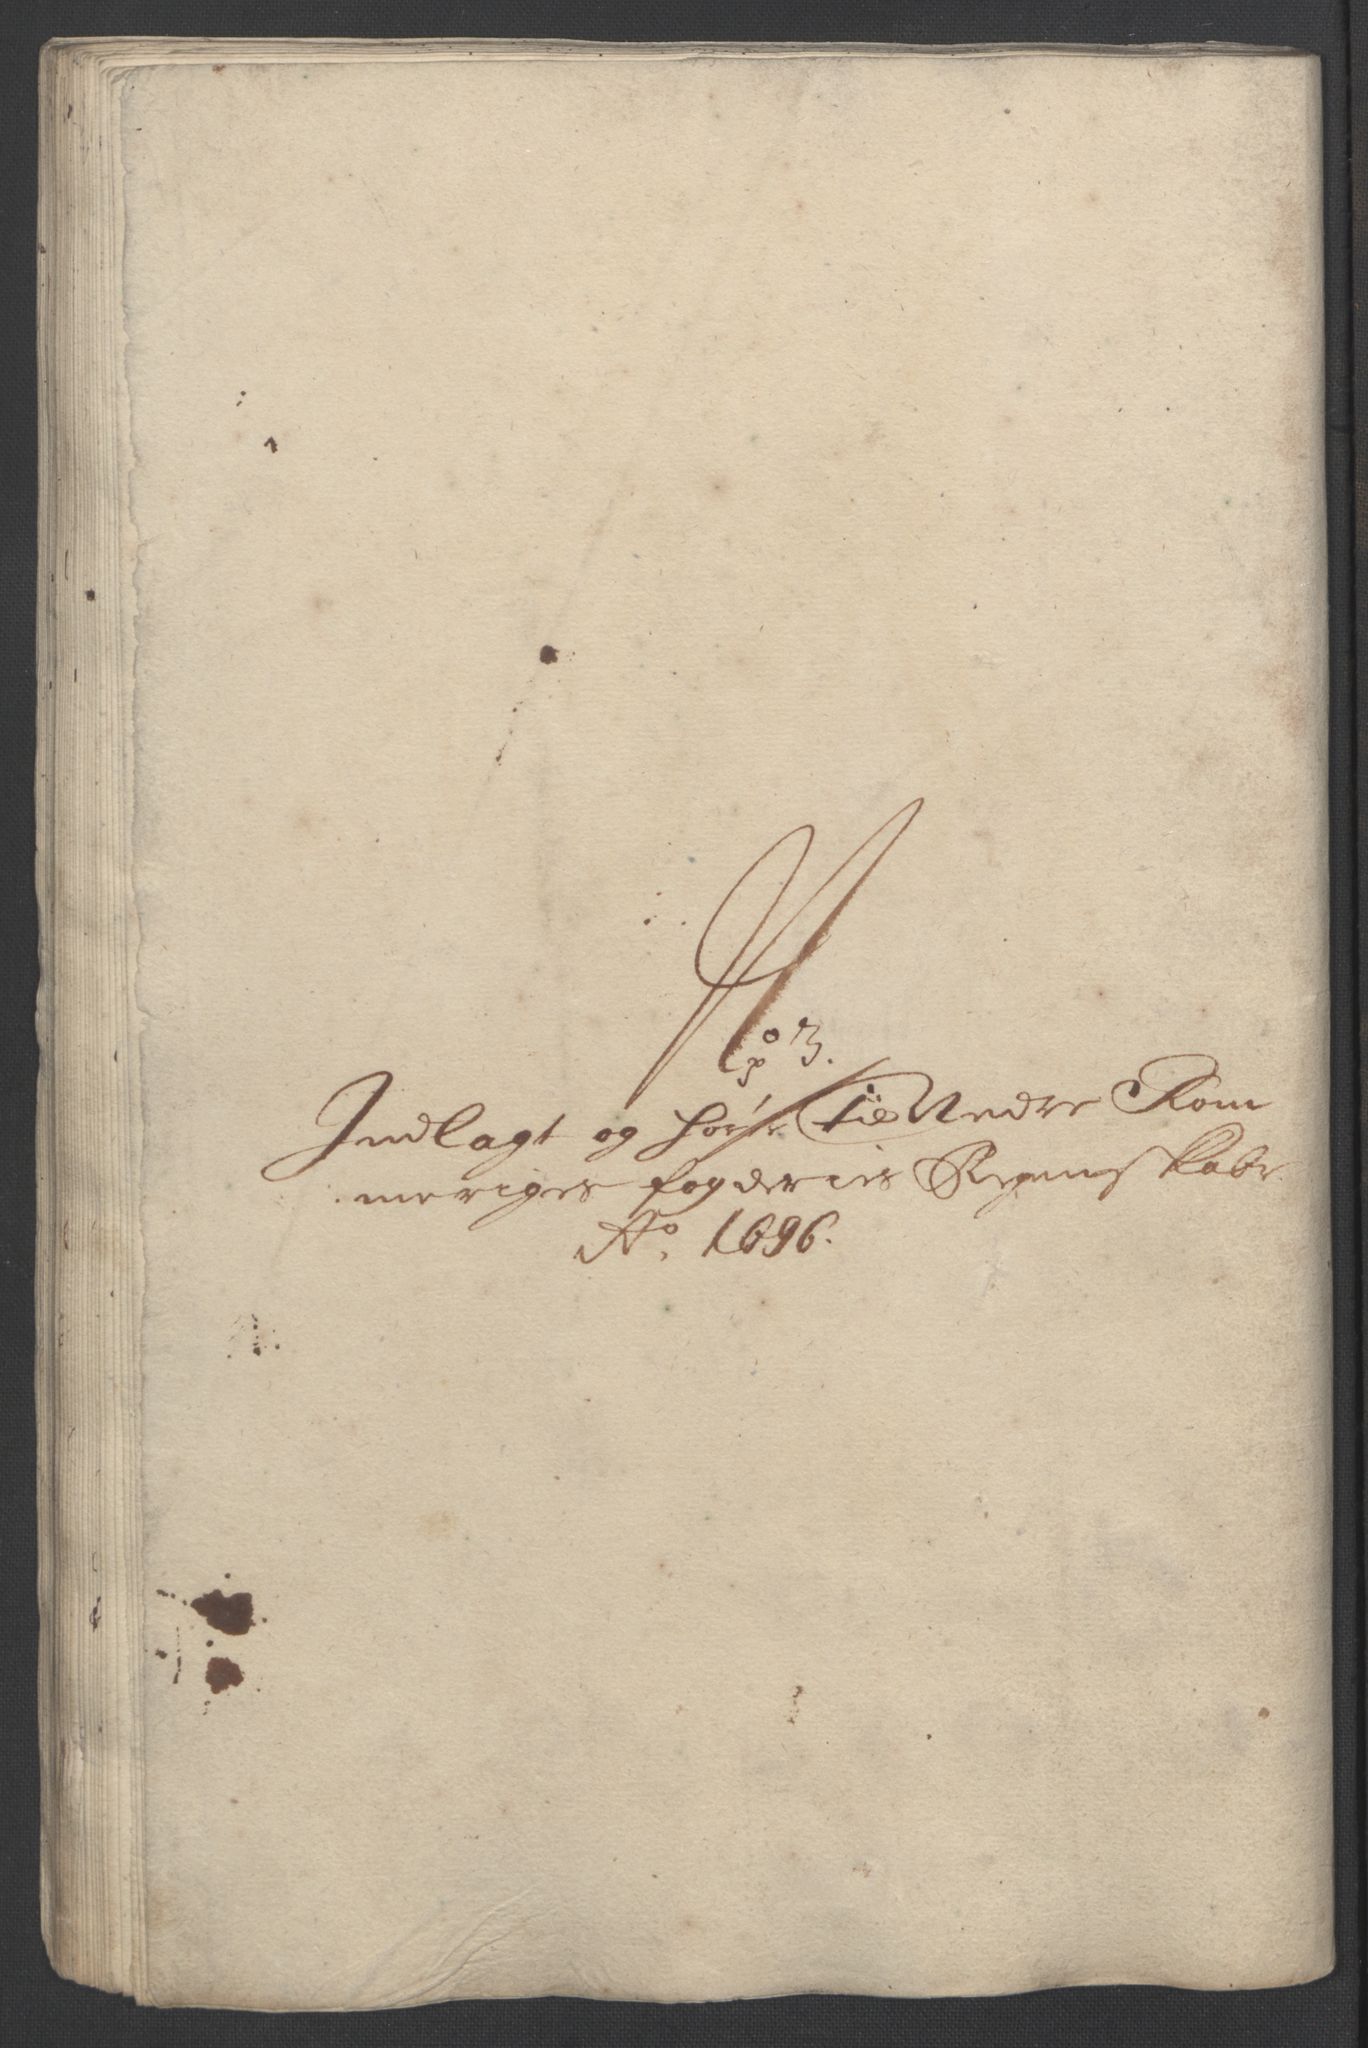 No 3.
Indlagt og hører till Nedre Rom
meriges fogderies Regenskabe
Ao. 1696.